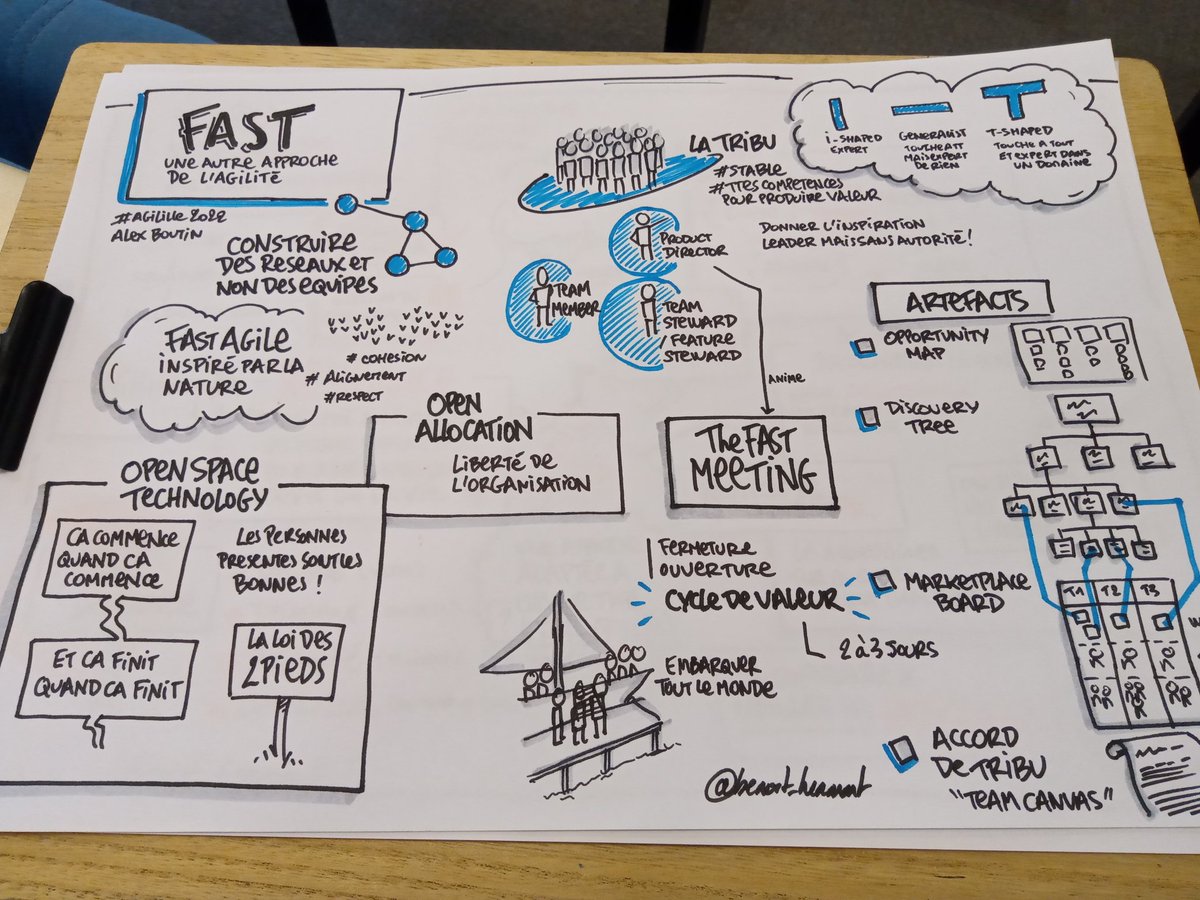 FAST
UNE AUTRE APPROCHE
DE L'AGILITÉ
#AGILILLE 2022
ALEX BOUTIN
CONSTRUIRE
DES RESEAUX ET
NON DES EQUIPES
FAST AGILE
INSPIRÉ PAR LA
NATURE
# COHESION
# ALIGNEMENT
# RESPECT
LA TRIBU
#STABLE
#TTES COMPETENCES
POUR PRODUIRE VALEUR
I-SHAPED
EXPERT
GENERALIST
TOUCHE ATT
MAIS EXPERT
DE RIEN
T-SHAPED
TOUCHE A TOUT
ET EXPERT DANS
UN DOMAINE
PRODUCT
DIRECTOR
DONNER L'INSPIRATION
LEADER MAIS SANS AUTORITÉ!
TEAM
MEMBER
TEAM
STEWARD
/ FEATURE
STEWARD
ANIME
OPEN
ALLOCATION
LIBERTÉ DE
L'ORGANISATION
The FAST
MEETING
OPEN SPACE
TECHNOLOGY
CA COMMENCE
QUAND CA
COMMENCE
ET CA FINIT
QUAND CA FINIT
LES PERSONNES
PRESENTES SONT LES
BONNES !
LA LOI DES
2 PIEDS
FERMETURE
OUVERTURE
CYCLE DE VALEUR
2 à 3 JOURS
EMBARQUER
TOUT LE MONDE
ARTEFACTS
OPPORTUNITY
MAP
DISCOVERY
TREE
MARKETPLACE
BOARD
T1 T2 T3
ACCORD
DE TRIBU
"TEAM CANVAS"